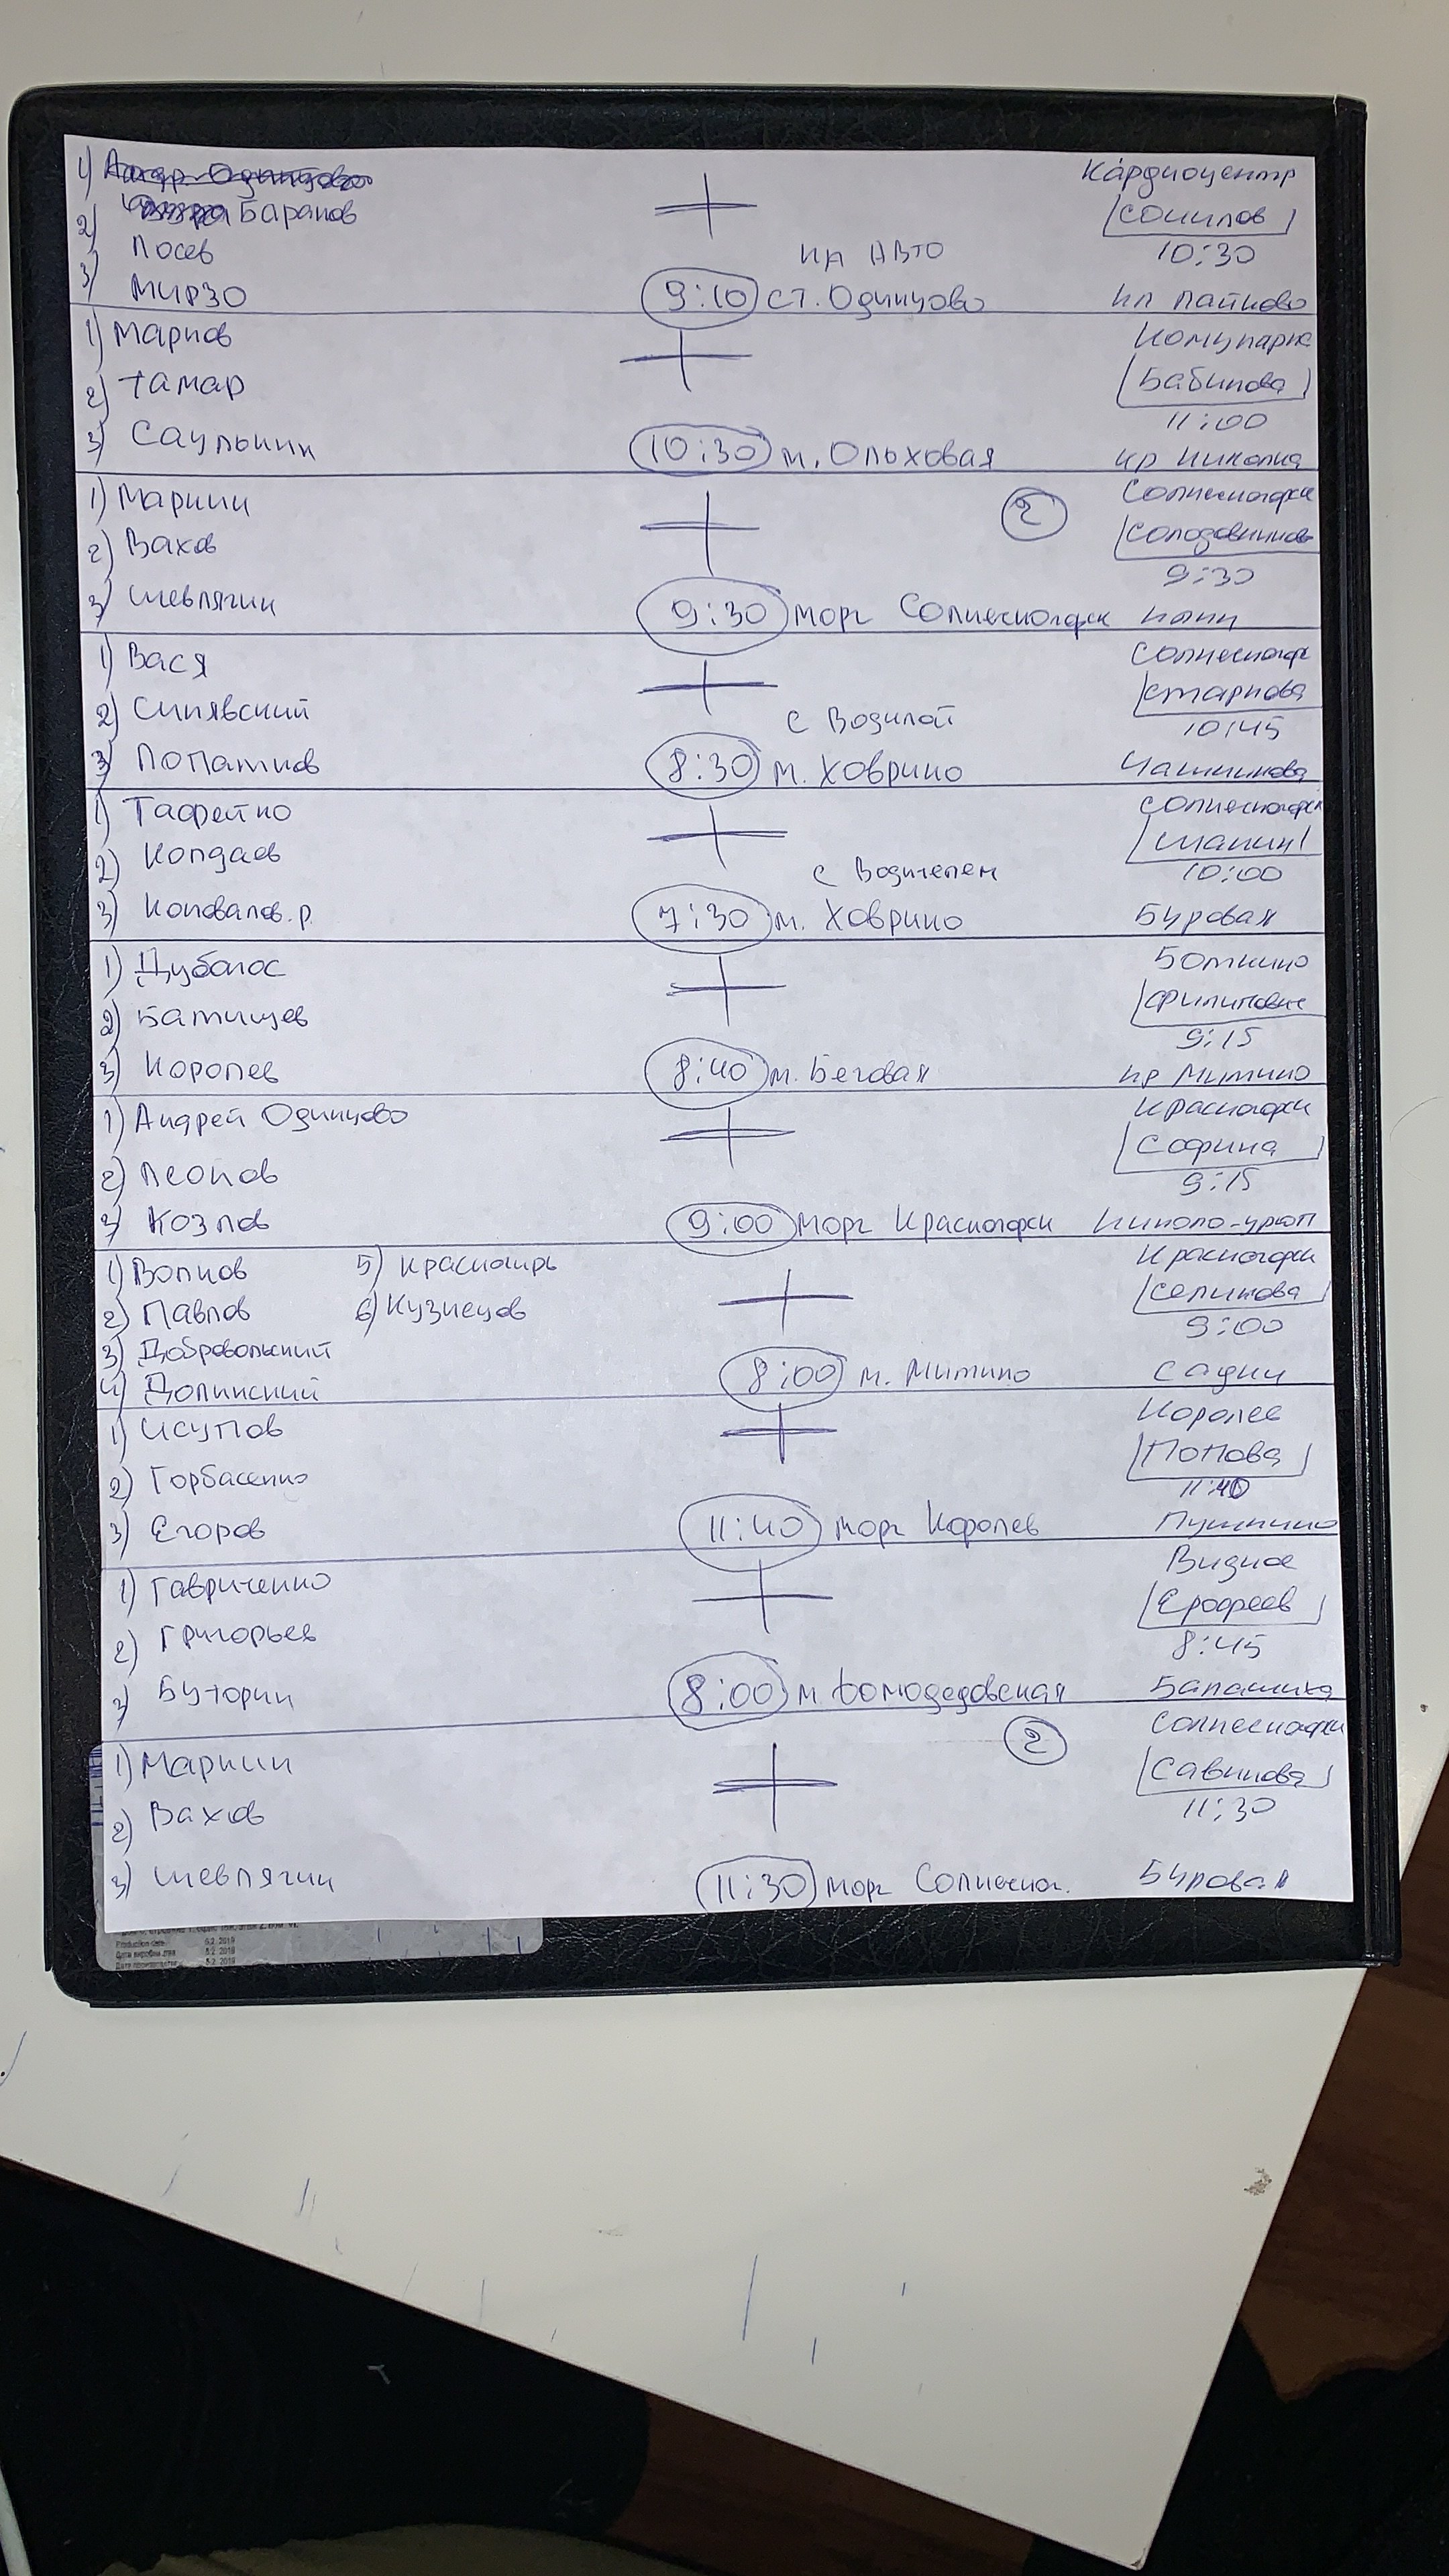 1) Баранов
2) Лосев
3) Мирзо
на АВТО
9:10 ст. Одинцово
Кардиоцентр
10:30
1) Марков
2) Тамар
3) Саулькин
10:30 м. Ольховая
Комунарка
Бабикова
11:00
кр Никольск
1) Маркин
2) Вахов
3) Шевлягин
2
9:30 морг Солнечногорск
Солнечногорск
Солодовников
9:30
1) Вася
2) Синявский
3) Лопатков
с Водилой
8:30 м. Ховрино
Солнечногорск
Старкова
10:45
Чашникова
1) Тафейко
2) Колдаев
3) Коновалов.р.
с Водителем
7:30 м. Ховрино
Солнечногорск
Шакин
10:00
Буровая
1) Дубонос
2) Батищев
3) Королев
8:40 м. Беговая
Боткино
9:15
кр Митино
1) Андрей Одинцово
2) Леонов
3) Козлов
9:00 морг Красногорск
Красногорск
Софина
9:15
Николо-Урюп
1) Волков 5) Краснощирь
2) Павлов 6) Кузнецов
3) Добровольский
4) Долинский
8:00 м. Митино
Красногорск
Селикова
9:00
1) Исупов
2) Горбасенко
3) Егоров
11:40 морг Королев
Королев
Попова
11:40
Пушкино
1) Гавриченко
2) Григорьев
3) Буторин
8:00 м Домодедовская
Видное
Ерофеев
8:45
Балашиха
1) Маркин
2) Вахов
3) Шевлягин
2
11:30 морг Солнечног.
Солнечногорск
Савинова
11:30
Буровая